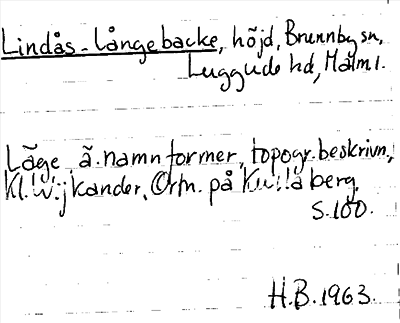 Lindås-Långebacke, höjd, Brunnby sn,
Luggude hd, Malm l.
Läge, ä. namnformer, topogr. beskrivn.,
Kl. Wijkander, Ortn. på Kullaberg
S. 100.
H.B. 1963.